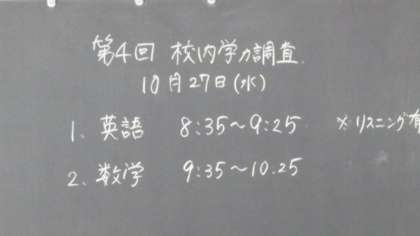 第4回 校内学力調査
10月27日(水)
1、英語 8:35～9:25 ※リスニング有
2、数学 9:35～10.25